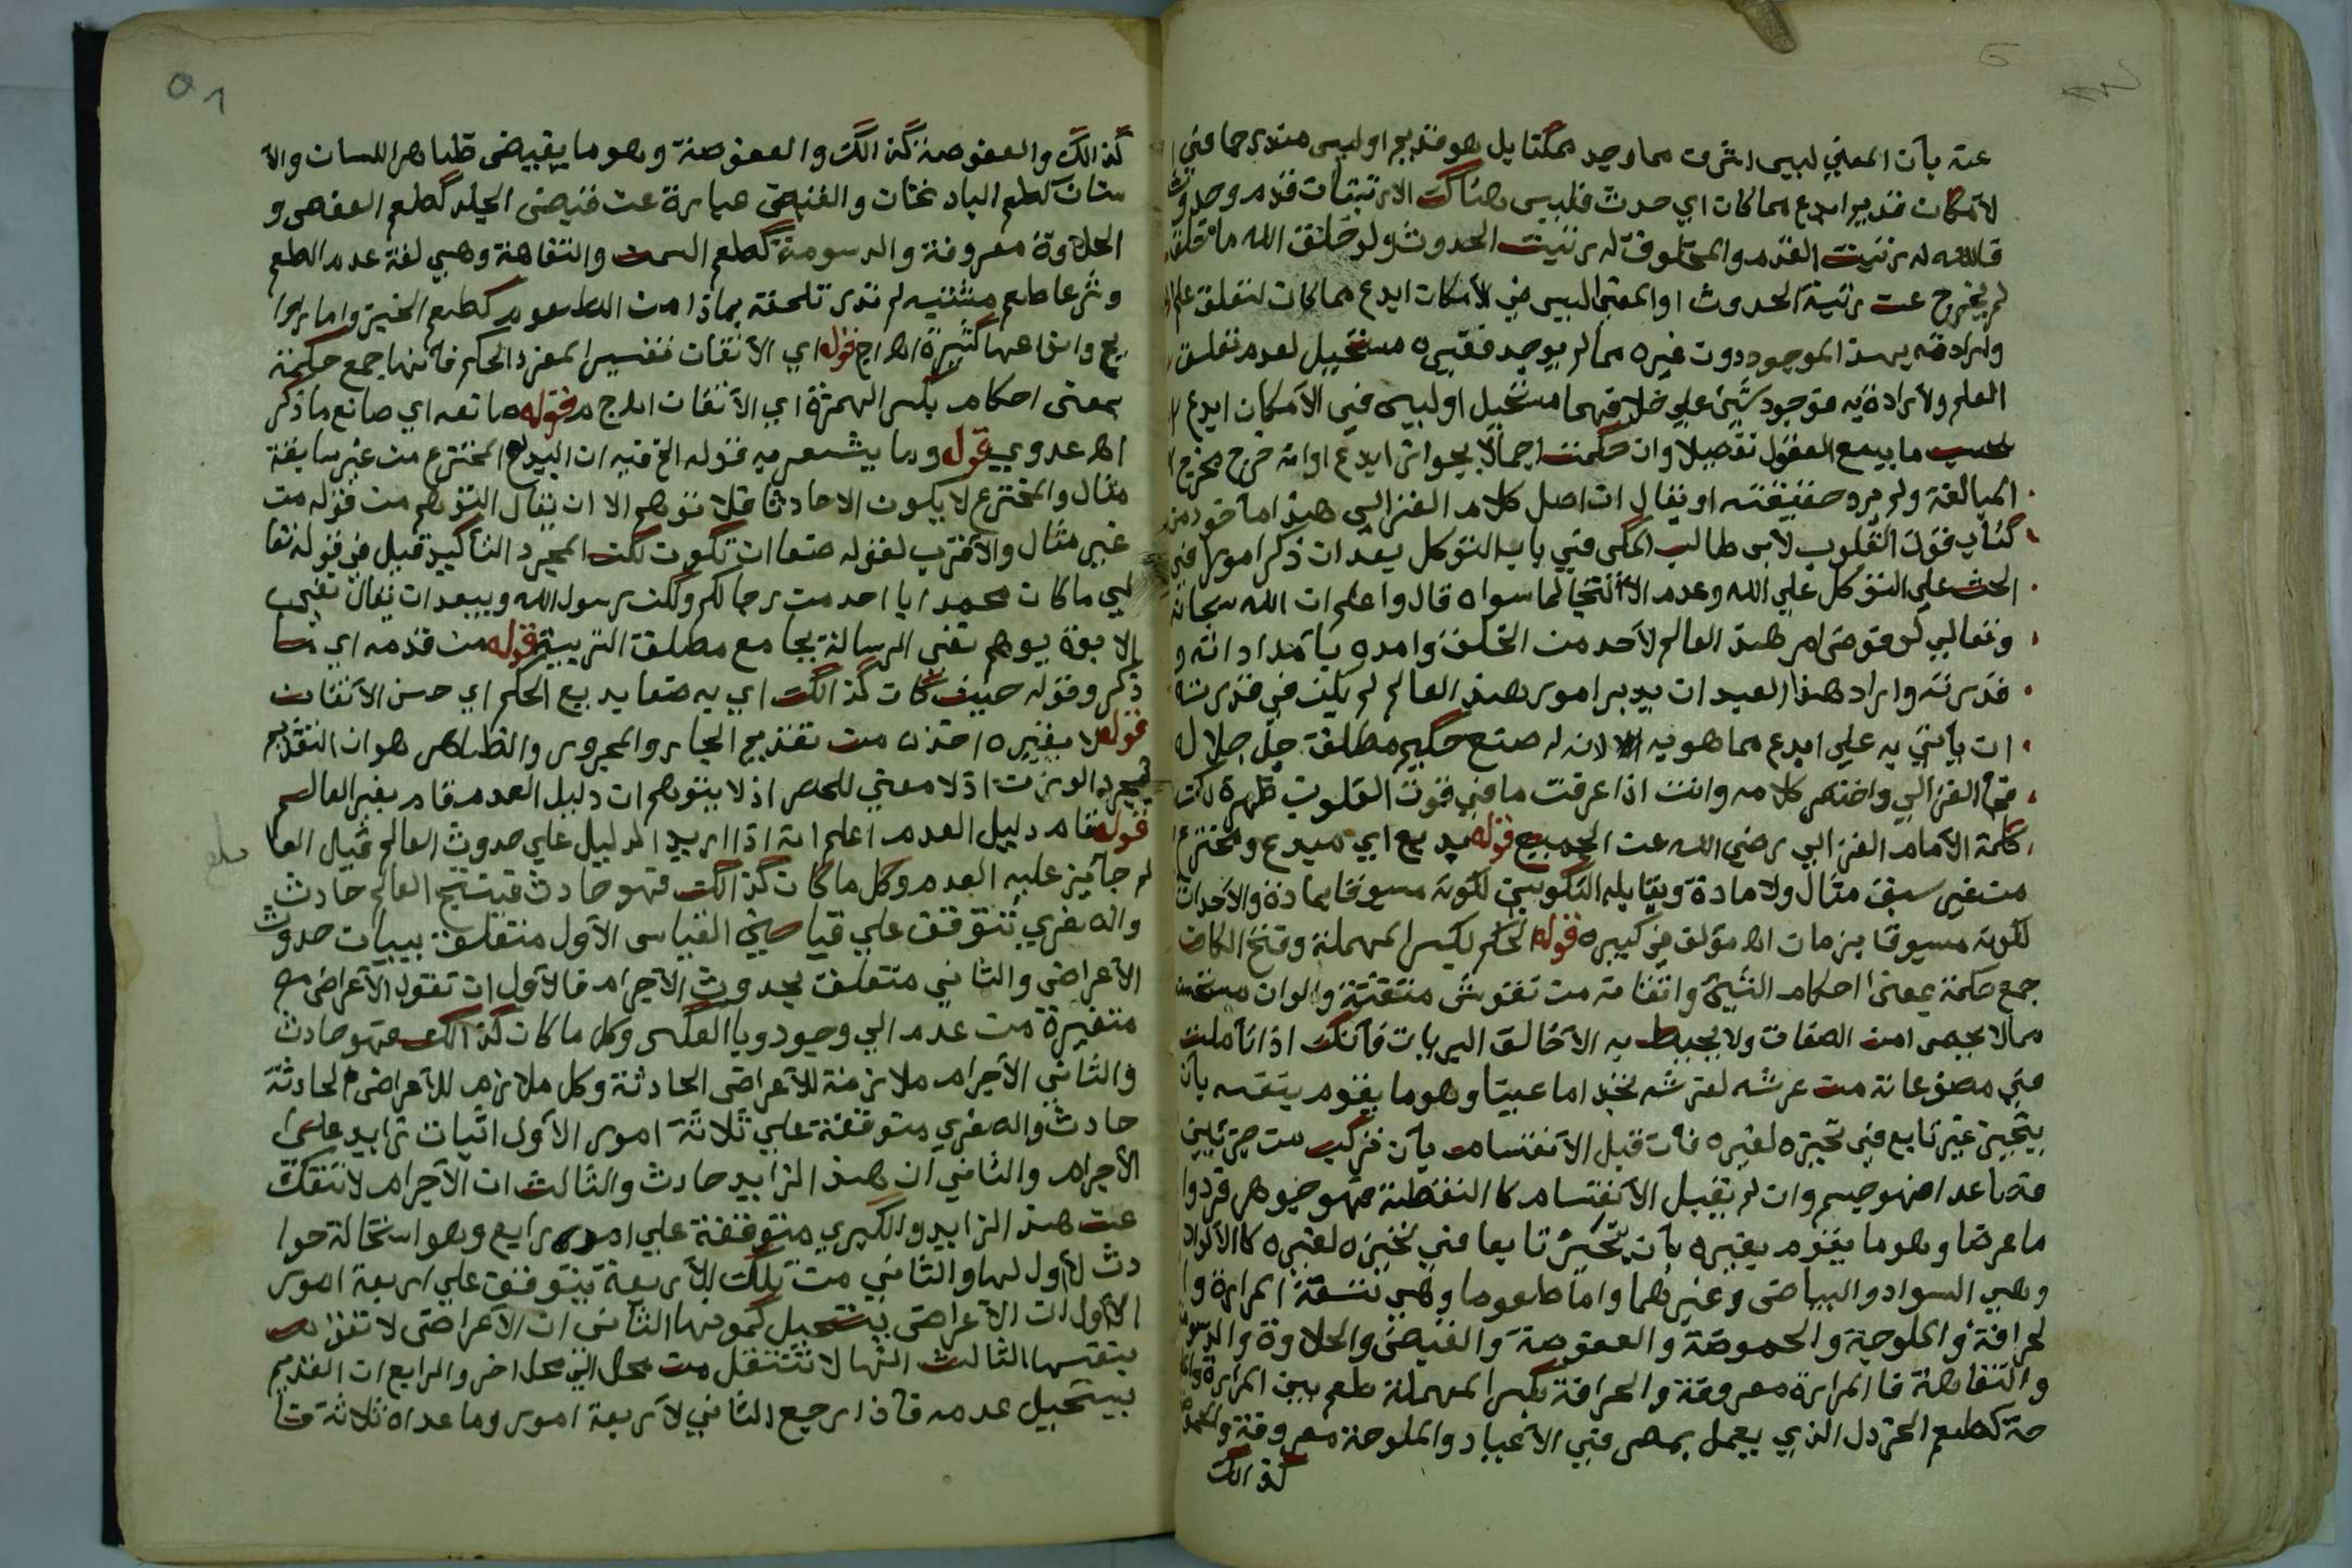 عنه بأن المعني ليس اشرف مما وجد ممكنا بل هو قديم او ليس مندرجا في
لامكان قديم ابدع مما كان اي حدث فليس هناك الا رتبتان قدم وحدوث
قالله له رتبت القدم والمخلوق له رتبت الحدوث ولو خلق الله ما خلق
لم يخرج عن رتبة الحدوث او المعني ليس في الامكان ابدع مما كان لتعلق علم
وارادته بهذا الموجود دون غيره مما لم يوجد فغيره مستحيل لعدم تعلق
العلم والارادة به فوجود شيئ علي خلافهما مستحيل او ليس في الامكان ابدع
بحسب ما يسع العقول تفصيلا وان حكمت اجمالا بجواز ابدع او انه خرج مخرج
المبالغة ولم يرد حقيقته او يقال ان اصل كلام الغزالي هذا ماخوذ من
كتاب قوت القلوب لابي طالب المكي في باب التوكل بعد ان ذكر امورا في
الحث علي التوكل علي الله وعدم الالتجا لما سواه قال واعلم ان الله سبحانه
وتعالي لو فوض امر هذا العالم لاحد من الخلق وامده بامداداته و
قدرته واراد هذا العبد ان يدبر امور هذا العالم لم يكن في قدرته
ان ياتي به علي ابدع مما هو به لانه له صنع حكيم مطلق جل جلاله
فجا الغزالي واختصر كلامه وانت اذا عرفت ما في قوت القلوب ظهر لك
كلمة الامام الغزالي رضي الله عن الجميع قوله بديع اي مبدع ومخترع
من غير سبق مثال ولا مادة ويقابله التكوين لكونه مسبوقا بمادة والاحداث
لكونه مسبوقا بزمان اه مؤلف في كبيره قوله الحكم بكسر المهملة وفتح الكاف
جمع حكمة بمعني احكام الشيئ واتقانه من نقوش متقنة والوان مستحسنة
مما لا يحصر من الصفات ولا يحيط به الا خالق البريات فانك اذا تاملت
في مصنوعاته من عرشه لفرشه تجد اما عينا وهو ما يقوم بنفسه بان
يتحيز غير تابع في تحيزه لغيره فان قبل الانقسام بان تركب من جزئين
فصاعدا فهو جسم وان لم يقبل الانقسام كا النقطة فهو جوهر فرد وا
ما عرضا وهو ما يقوم بغيره بان يتحيز تابعا في تحيزه لغيره كا الالوان
وهي السواد والبياض وغيرهما واما طعوما وهي تسعة المرارة وا
لحرافة والملوحة والحموضة والعفوصة والقبض والحلاوة والدسومة
والتفاهة فا المرارة معروفة والحرافة بكسر المهملة طعم بين المرارة
حة كطعم الخردل الذي يعمل بمصر في الاعياد والملوحة معروفة
كذالك
كذالك والعفوصة كذالك والعفوصة وهو ما يقبض ظاهر اللسان والا
ستان كطعم الباد نختان والقبض عبارة عن قبض الجلد كطعم العفص و
الحلاوة معروفة والدسومة كطعم السمن والتفاهة وهي لغة عدم الطعم
وشرعا طعم مشتبه لم تدر تلحقه بماذا من الطعوم كطعم الخبز واما روا
يح وانواعها كثيرة اه اج قوله اي الاتقان تفسير لمفرد الحكم فانها جمع حكمة
بمعني احكام بكسر الهمزة اي الاتقان اه اج م قوله صانعه اي صانع ما ذكر
اه عدوي قول وربما يشعر به قوله الخ فيه ان البديع المخترع من غير سابقة
مثال والمخترع لا يكون الا حادثا فلا توهم الا ان يقال التوهم من قوله من
غير مثال والاقرب لقوله صنعا ان تكون لكن لمجرد التاكيد قبل في قوله تعا
لي ما كان محمد ابا احد من رجالكم ولكن رسول الله ويبعد ان يقال نفي ب
الابوة يوهم نفي الرسالة بجامع مطلق التربية قوله من قدمه اي لما
ذكر وقوله حيث كان كذالك اي به صنعا بديع الحكم اي حسن الاتقان
قوله لا بغيره اخذه من تقديم الجار والمجرور والظاهر هو ان التقديم
لمجرد الوزن اذ لا معني للحصر اذ لا يتوهم ان دليل العدم قام بغير العالم
قوله قام دليل العدم اعلم انه اذا اريد الدليل علي حدوث العالم قيل العا
لم جائيز عليه العدم وكل ما كان كذالك فهو حادث فينتج العالم حادث
والصغري تتوقف علي قياصين القياس الاول متعلق ببيان حدوث
الاعراض والثاني متعلق بحدوث الاجرام فالاول ان تقول الاعراض
متغيرة من عدم الي وجود وبا العكس وكل ما كان كذالك فهو حادث
والثاني الاجرام ملازمة للاعراض الحادثة وكل ملازم للاعراض الحادثة
حادث والصغري متوقفة علي ثلاثة امور الاول اثبات زايد علي
الاجرام والثاني ان هذا الزايد حادث والثالث ان الاجرام لا تنفك
عن هذا الزايد والكبري متوقفة علي امر رابع وهو استحالة حوا
دث لا اول لها والثاني من تلك الاربعة يتوقف علي اربعة امور
الاول ان الاعراض يستحيل كمونها الثاني ان الاعراض لا تقوم
بنفسها الثالث انها لا تنتقل من محل الي محل اخر والرابع ان القديم
يستحيل عدمه فاذا رجع الثاني لاربعة امور وما عداه ثلاثة